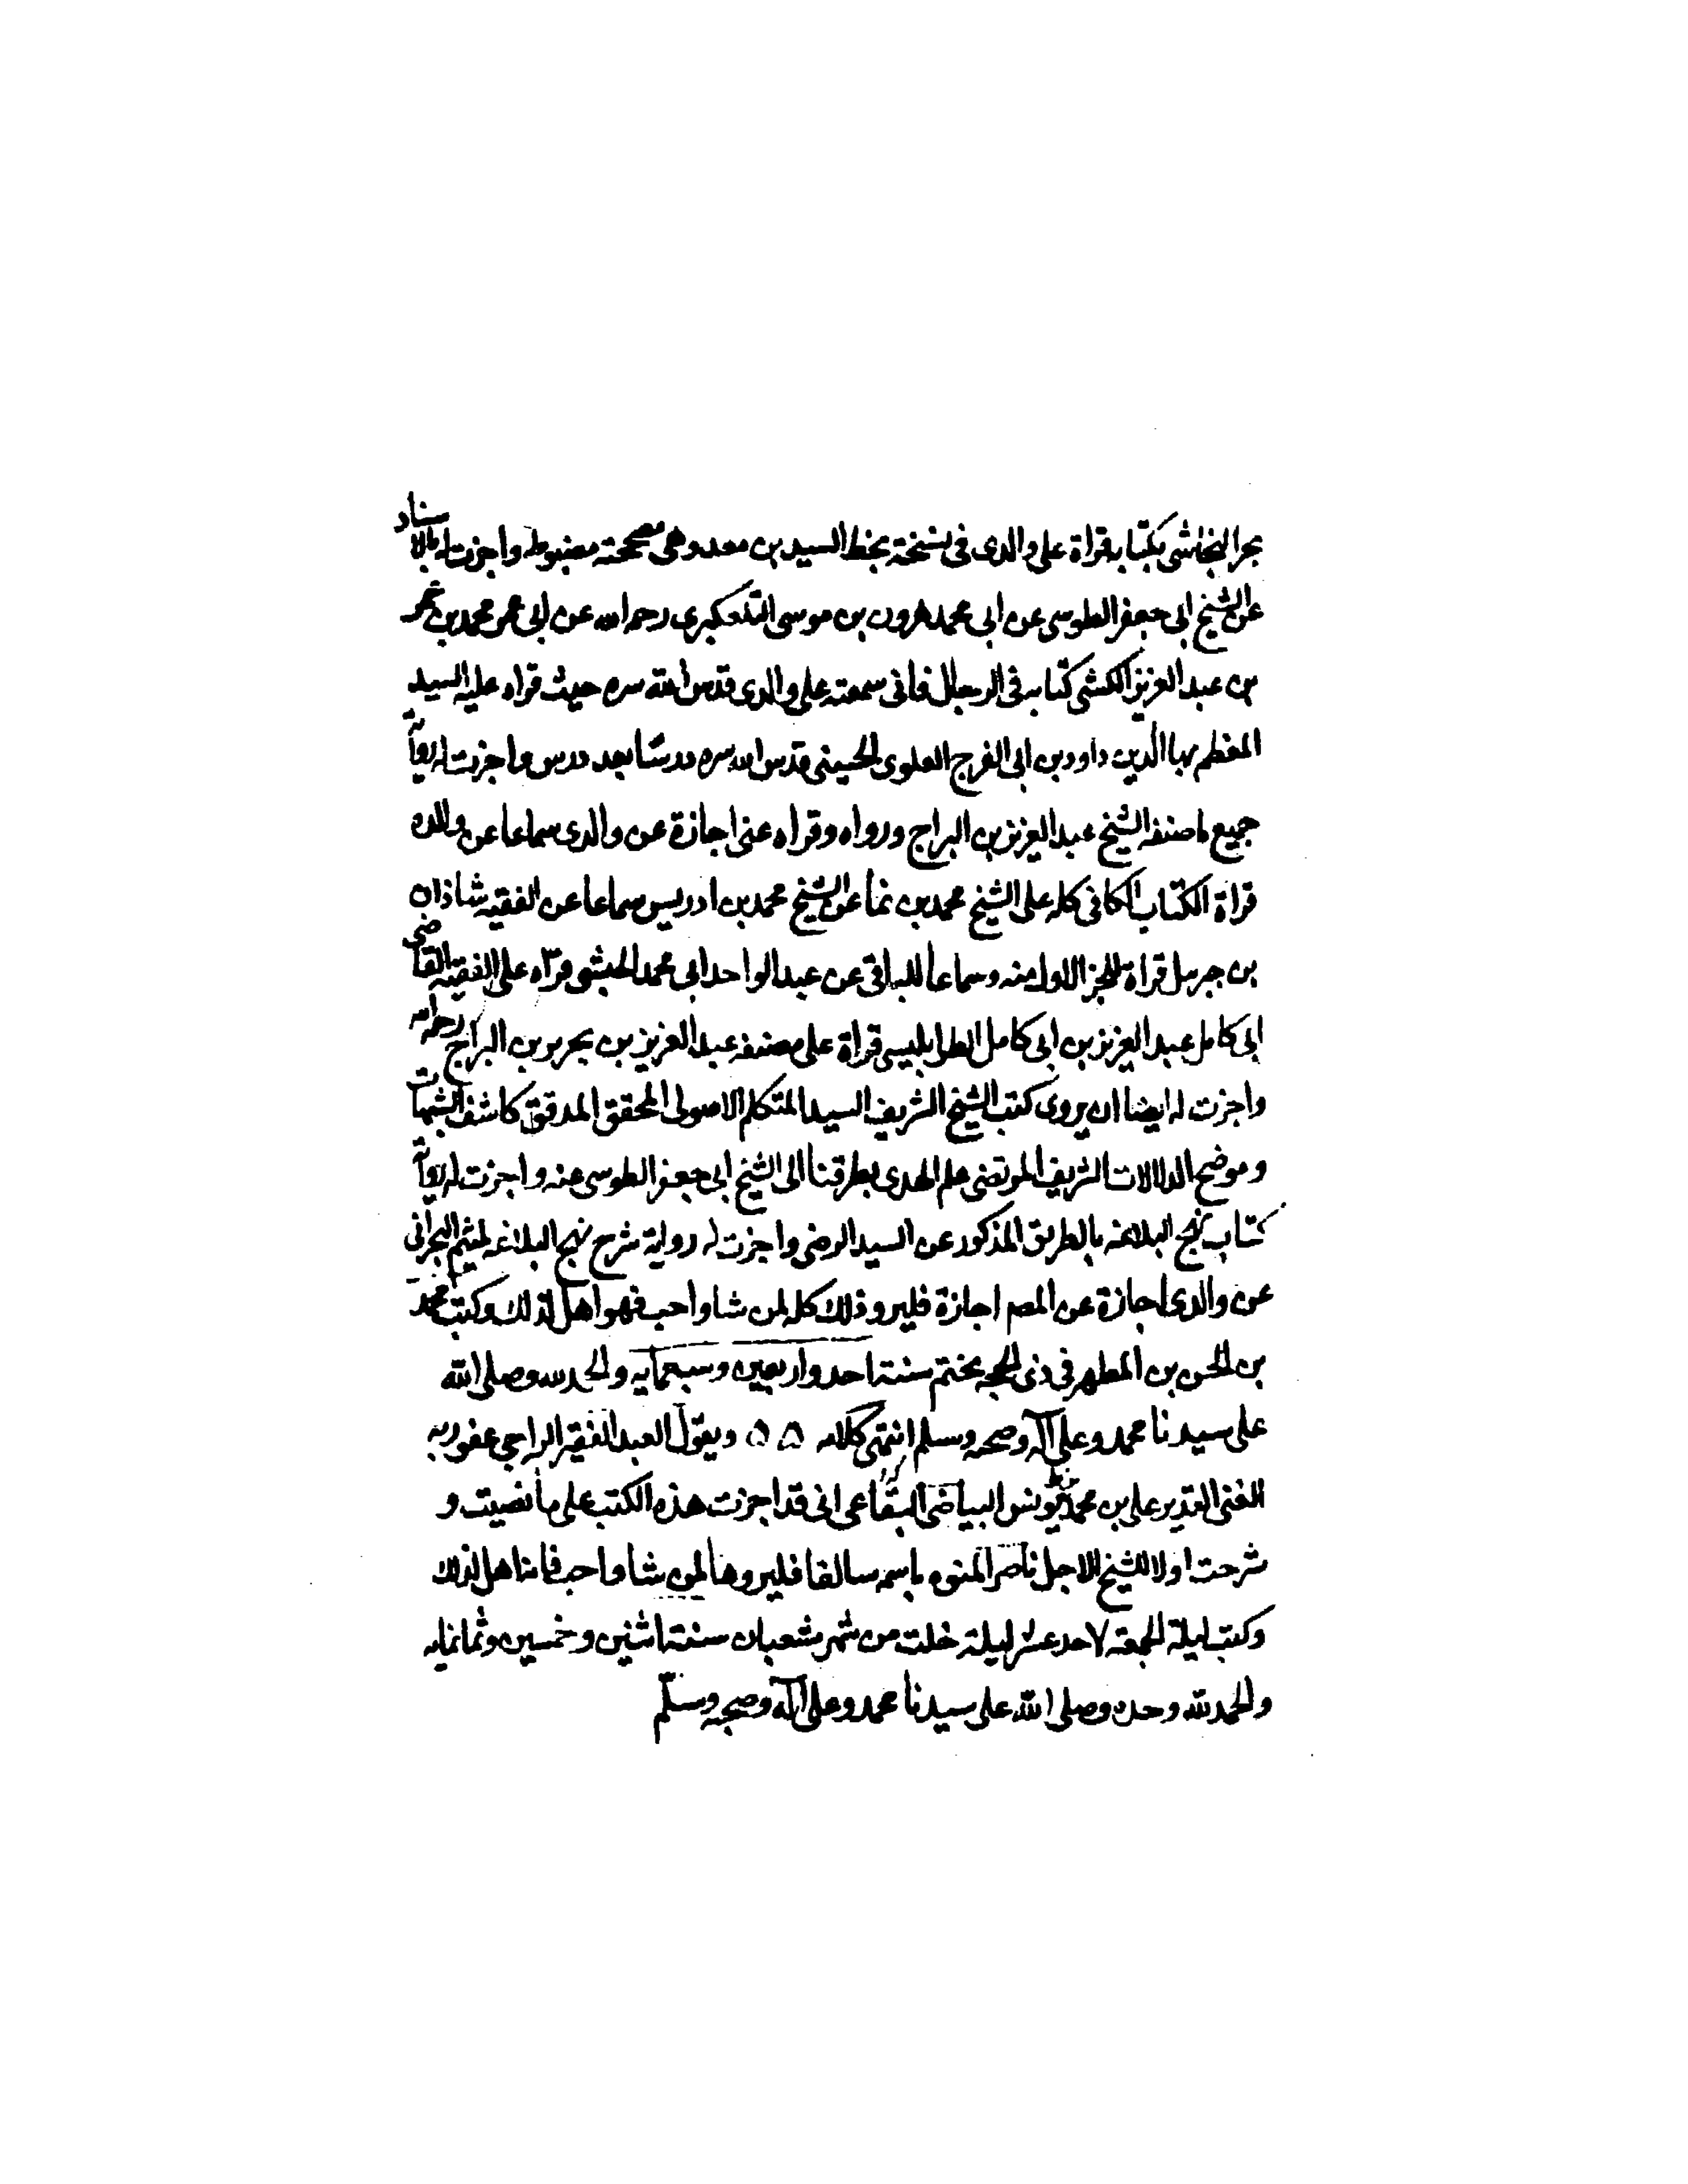 بحر النجاشي بكتابه قراة على والدى فى نسخة بخط السيد بن معد وهى مصححة مضبوطه واجزت له بالاسناد
عن الشيخ ابى جعفر الطوسى عن ابى محمد هرون بن موسى التلعكبرى رحمه الله عن ابى عمر محمد بن عمر
بن عبد العزيز الكشى كتابه فى الرجال فانى سمعته على والدى قدس الله سره حيث قراه عليه السيد
المعظم بها الدين داود بن ابى الفرج العلوى الحسينى قدس الله سره درسا بعد درس واجزت له رواية
جميع ما صنفه الشيخ عبد العزيز بن البراج ورواه وقراه عنى اجازة عن والدى سماعا عن والده
قراة الكتاب الكافى كله على الشيخ محمد بن نما عن الشيخ محمد بن ادريس سماعا عن الفقيه شاذان
بن جبرىل قراة للجز الاول منه وسماعا للباقى عن عبد الواحد ابى محمد الحبشى قراه على الفقيه القاضى
ابى كامل عبد العزيز بن ابى كامل الطرابلسى قراة على مصنفه عبد العزيز بن بحرير بن البراج رحمه الله
واجزت له ايضا ان يروى كتب الشيخ الشريف السيد المتكلم الاصولى المحقق المدقق كاشف الشبهات
وموضح الدلالات الشريف المرتضى علم الهدى بطرقنا الى الشيخ ابى جعفر الطوسى عنه واجزت له رواية
كتاب نهج البلاغه بالطريق المذكور عن السيد الرضى واجزت له رواية شرح نهج البلاغه لميثم البحرانى
عن والدى اجازة عن المصم اجازة فليرو ذلك كله لمن شا واحب فهو اهل لذلك وكتب محمد
بن الحسن بن المطهر فى ذى الحجه مختتم سنة احد واربعين وسبعمايه والحمد لله وصلى الله
على سيدنا محمد وعلى آله وصحبه وسلم انتهى كلامه ۵ ۵ ويقول العبد الفقير الراجى عفو ربه
الغنى القدير على بن محمد بن يونس البياضى البقاعى انى قد اجزت هذه الكتب على ما نصيت و
شرحت اولا للشيخ الاجل ناصر المنوه باسمه سالفا فليروها لمن شا واحب فانه اهل لذلك
وكتب ليلة الجمعة لاحد عشر ليلة خلت من شهر شعبان سنة اثنين وخمسين وثمانمايه
والحمد لله وحده وصلى الله على سيدنا محمد وعلى آله وصحبه وسلم